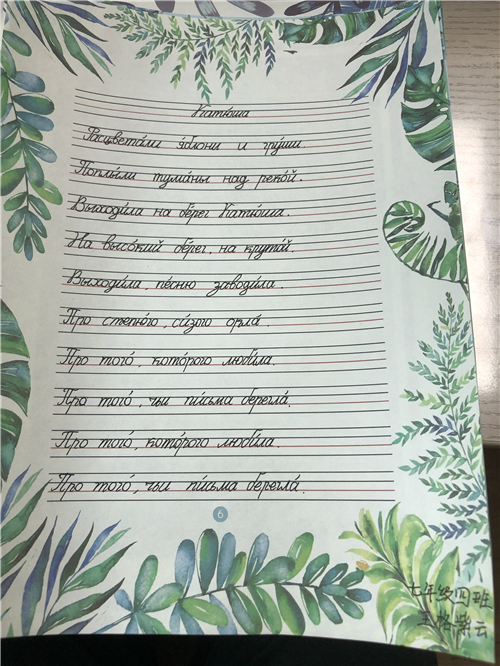 Катюша
Расцвета́ли я́блони и гру́ши.
Поплы́ли тума́ны над реко́й.
Выходи́ла на бе́рег Катю́ша.
На высо́кий бе́рег, на круто́й.
Выходи́ла, пе́сню заводи́ла.
Про степно́го, си́зого орла́.
Про того́, кото́рого люби́ла.
Про того́, чьи пи́сьма берегла́.
Про того́, кото́рого люби́ла.
Про того́, чьи пи́сьма берегла́.
6
七年级四班
王梅紫云